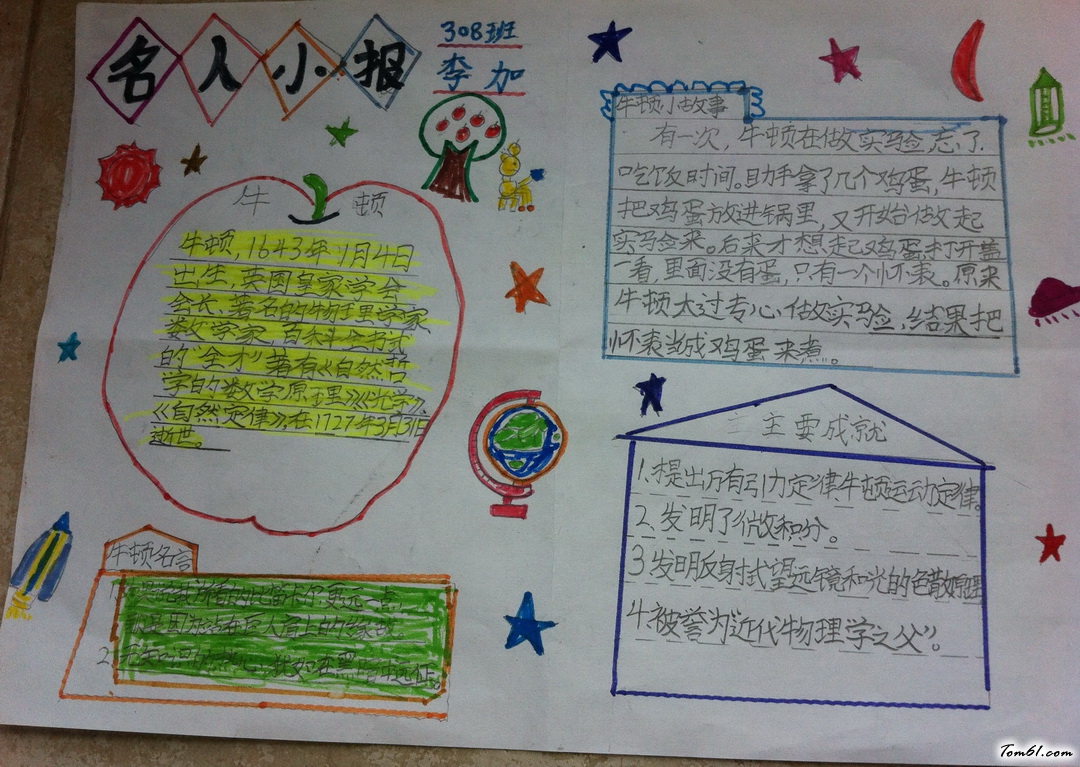 名人小报
308班
李加
牛顿
牛顿,1643年1月4日
出生,英国皇家学会
会长、著名的物理学家、
数学家,百科全书式
的“全才”著有《自然哲
学的数学原理》《光学》
《自然定律》,在1727年3月31日
逝世。
牛顿名言
牛顿小故事
有一次,牛顿在做实验,忘了
吃饭时间。助手拿了几个鸡蛋,牛顿
把鸡蛋放进锅里,又开始做起
实验来。后来才想起鸡蛋,打开盖
一看,里面没有蛋,只有一个怀表。原来
牛顿太过专心做实验,结果把
怀表当成鸡蛋来煮。
主要成就
1.提出万有引力定律、牛顿运动定律。
2.发明了微积分。
3.发明反射式望远镜和光的色散原理
4.被誉为“近代物理学之父”。
Tom61.com